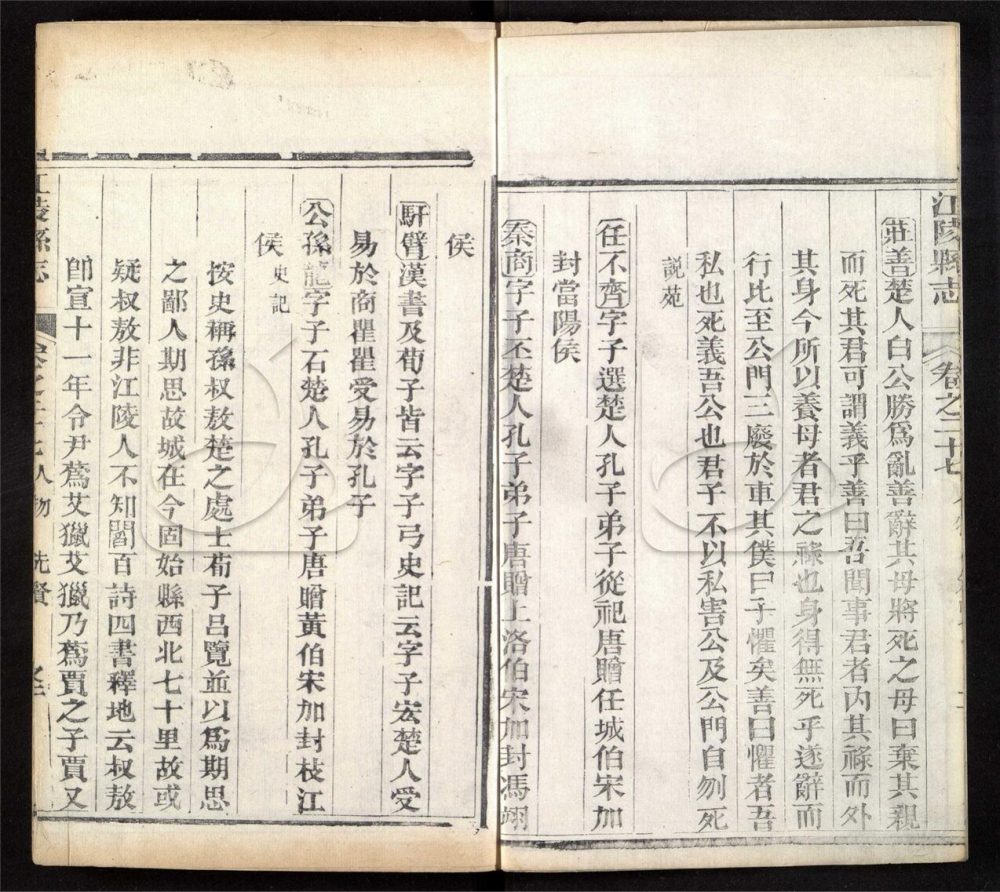 江陵縣志 卷之二十七
莊善楚人白公勝爲亂善辭其母將死之母曰棄其親
而死其君可謂義乎善曰吾聞事君者內其祿而外
其身今所以養母者君之祿也身得無死乎遂辭而
行比至公門三廢於車其僕曰子懼矣善曰懼者吾
私也死義吾公也君子不以私害公及公門自刎死
説苑
任不齊字子選楚人孔子弟子從祀唐贈任城伯宋加
封當陽侯
秦商字子丕楚人孔子弟子唐贈上洛伯宋加封馮翊
侯
馯臂漢書及荀子皆云字子弓史記云字子宏楚人受
易於商瞿瞿受易於孔子
公孫龍字子石楚人孔子弟子唐贈黃伯宋加封枝江
侯 史記
按史稱孫叔敖楚之處士荀子呂覽並以爲期思
之鄙人期思故城在今固始縣西北七十里故或
疑叔敖非江陵人不知閻百詩四書釋地云叔敖
卽宣十一年令尹蒍艾獵艾獵乃蒍賈之子賈又
江陵縣志 卷之二十七 人物 先賢